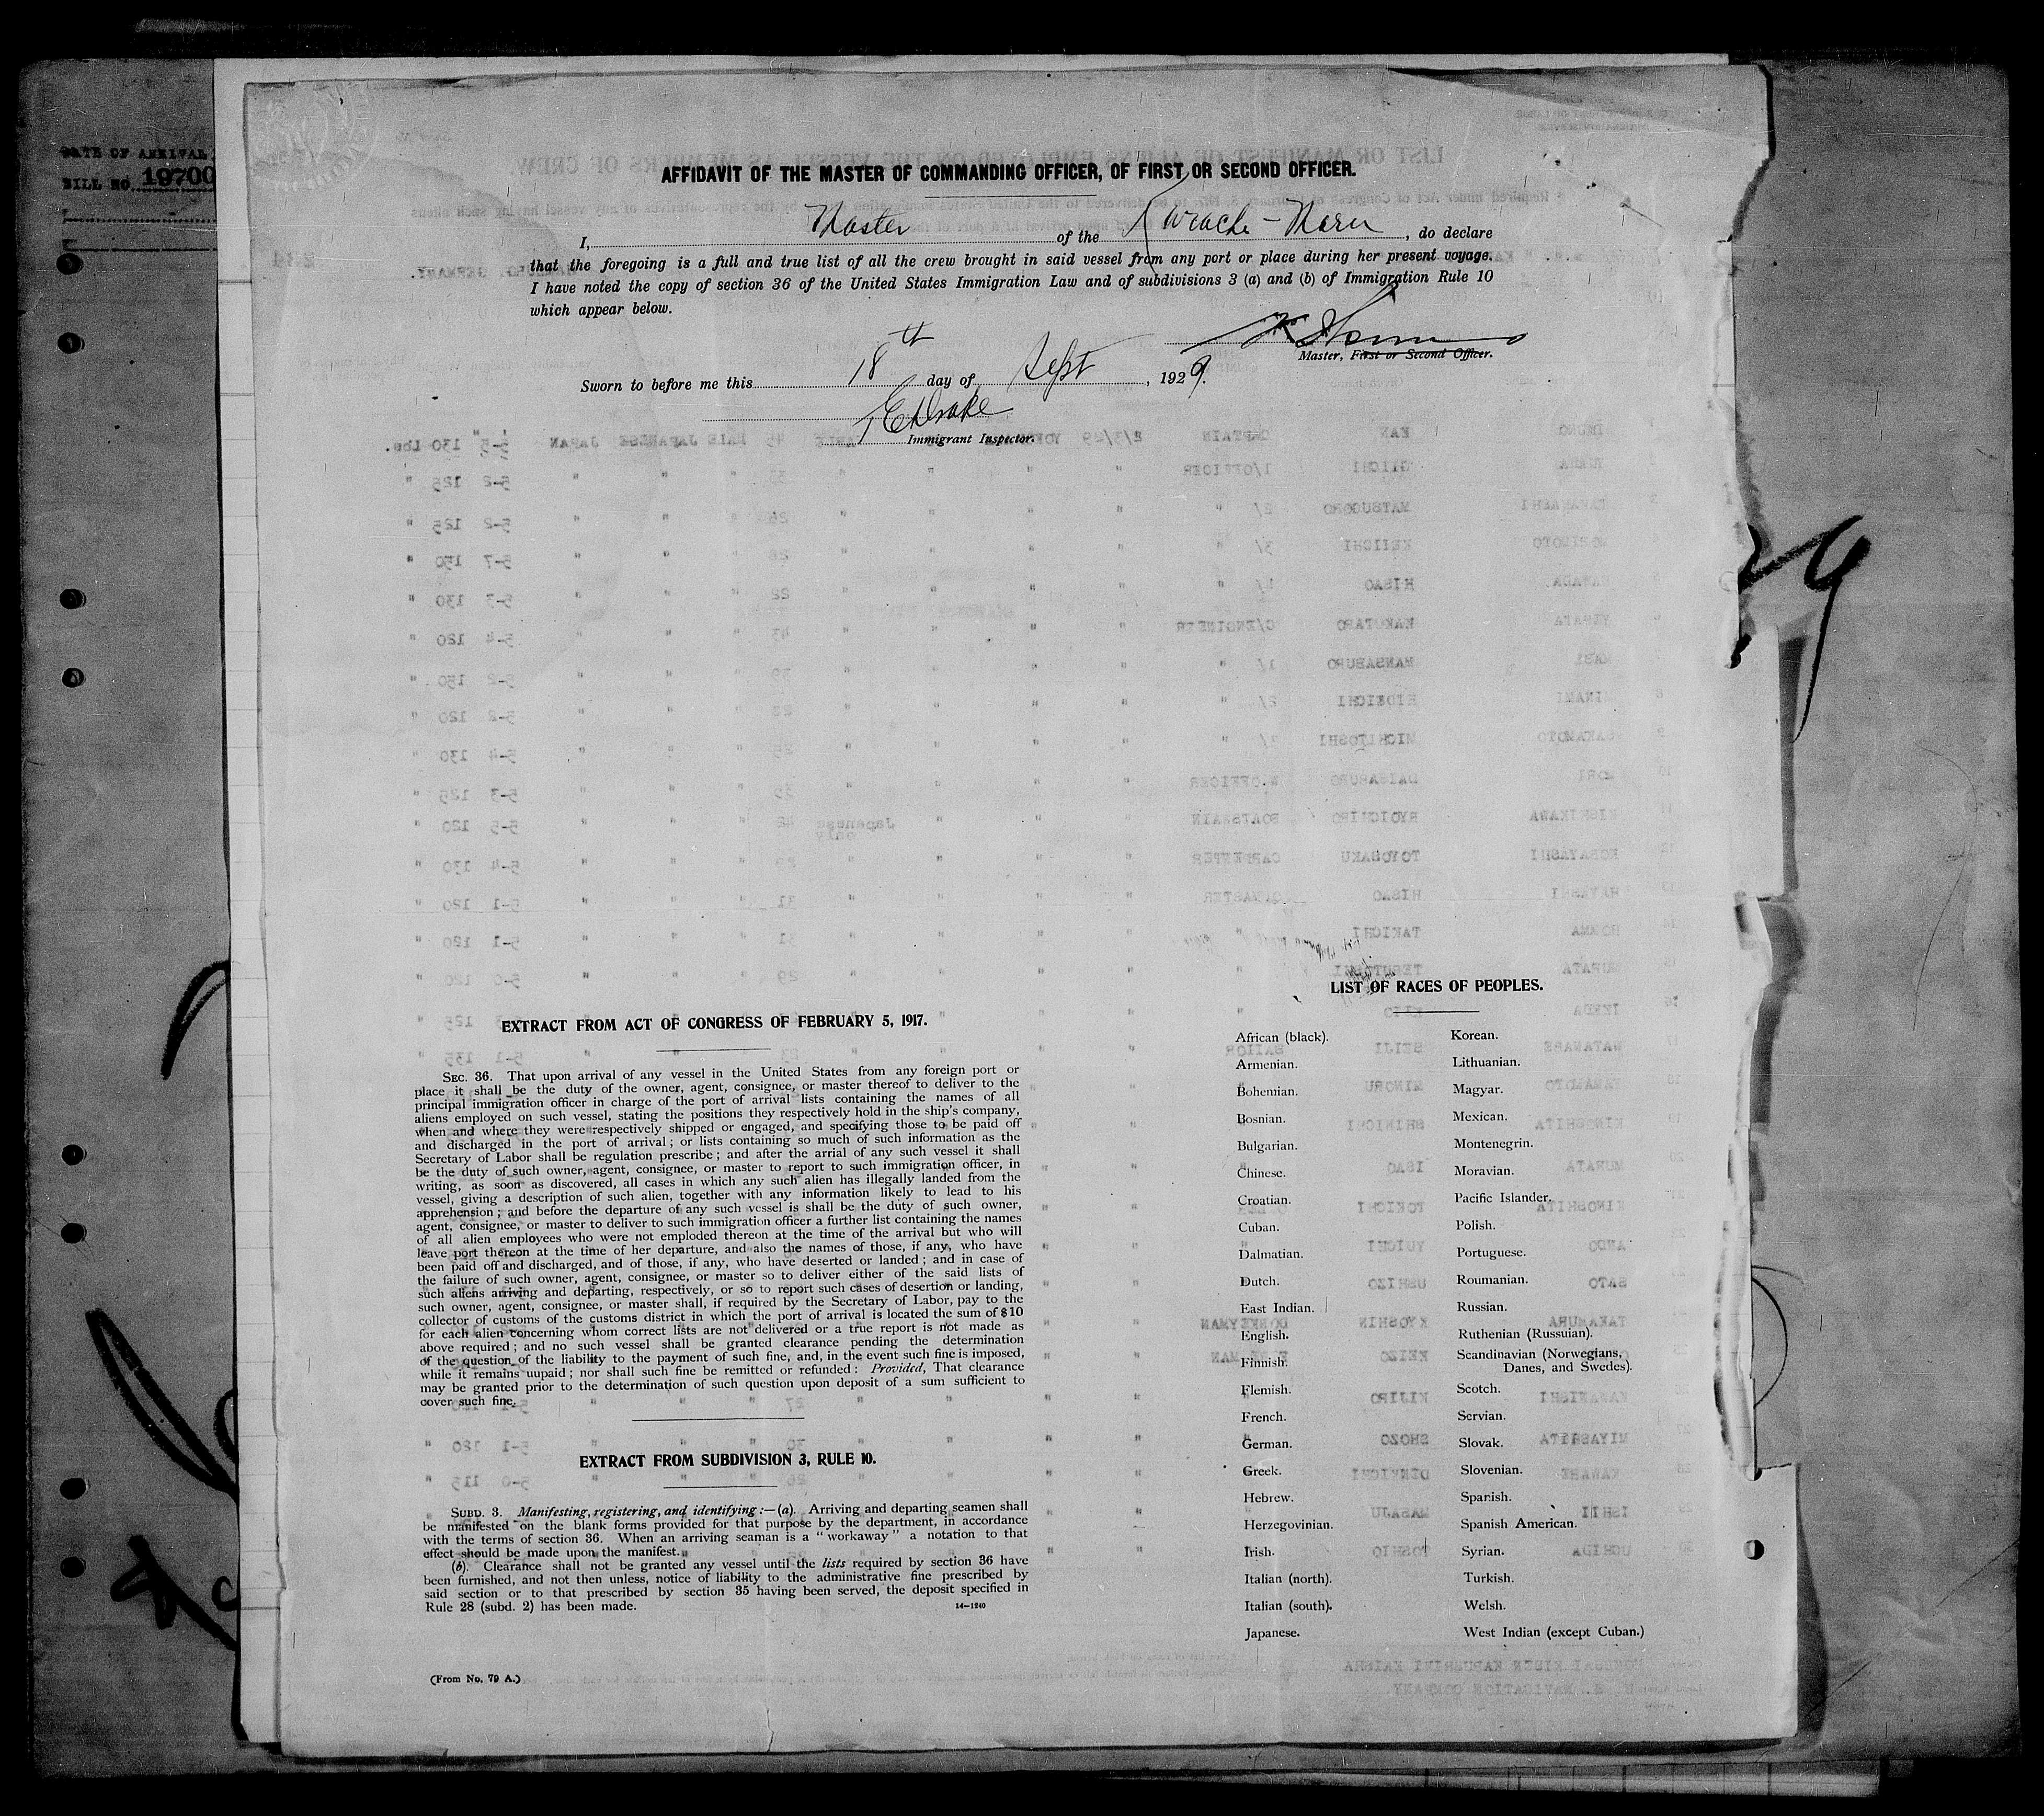 DATE OF ARRIVAL
BILL NO. 19700
AFFIDAVIT OF THE MASTER OF COMMANDING OFFICER, OF FIRST OR SECOND OFFICER.
I, Master of the Maru, do declare
that the foregoing is a full and true list of all the crew brought in said vessel from any port or place during her present voyage.
I have noted the copy of section 36 of the United States Immigration Law and of subdivisions 3 (a) and (b) of Immigration Rule 10
which appear below.
Master, First or Second Officer.
Sworn to before me this 18th day of Sept, 1929.
Drake
Immigrant Inspector.
EXTRACT FROM ACT OF CONGRESS OF FEBRUARY 5, 1917.
SEC. 36. That upon arrival of any vessel in the United States from any foreign port or
place it shall be the duty of the owner, agent, consignee, or master thereof to deliver to the
principal immigration officer in charge of the port of arrival lists containing the names of all
aliens employed on such vessel, stating the positions they respectively hold in the ship's company,
when and where they were respectively shipped or engaged, and specifying those to be paid off
and discharged in the port of arrival; or lists containing so much of such information as the
Secretary of Labor shall be regulation prescribe; and after the arrial of any such vessel it shall
be the duty of such owner, agent, consignee, or master to report to such immigration officer, in
writing, as soon as discovered, all cases in which any such alien has illegally landed from the
vessel, giving a description of such alien, together with any information likely to lead to his
apprehension; and before the departure of any such vessel is shall be the duty of such owner,
agent, consignee, or master to deliver to such immigration officer a further list containing the names
of all alien employees who were not emploded thereon at the time of the arrival but who will
leave port thereon at the time of her departure, and also the names of those, if any, who have
been paid off and discharged, and of those, if any, who have deserted or landed; and in case of
the failure of such owner, agent, consignee, or master so to deliver either of the said lists of
such aliens arriving and departing, respectively, or so to report such cases of desertion or landing,
such owner, agent, consignee, or master shall, if required by the Secretary of Labor, pay to the
collector of customs of the customs district in which the port of arrival is located the sum of $10
for each alien concerning whom correct lists are not delivered or a true report is not made as
above required; and no such vessel shall be granted clearance pending the determination
of the question of the liability to the payment of such fine, and, in the event such fine is imposed,
while it remains uupaid; nor shall such fine be remitted or refunded: Provided, That clearance
may be granted prior to the determination of such question upon deposit of a sum sufficient to
cover such fine.
EXTRACT FROM SUBDIVISION 3, RULE 10.
SUBD. 3. Manifesting, registering, and identifying:—(a). Arriving and departing seamen shall
be manifested on the blank forms provided for that purpose by the department, in accordance
with the terms of section 36. When an arriving seaman is a "workaway" a notation to that
effect should be made upon the manifest.
(b). Clearance shall not be granted any vessel until the lists required by section 36 have
been furnished, and not then unless, notice of liability to the administrative fine prescribed by
said section or to that prescribed by section 35 having been served, the deposit specified in
Rule 28 (subd. 2) has been made.
14—1240
(From No. 79 A.)
LIST OF RACES OF PEOPLES.
African (black).
Armenian.
Bohemian.
Bosnian.
Bulgarian.
Chinese.
Croatian.
Cuban.
Dalmatian.
Dutch.
East Indian.
English.
Finnish.
Flemish.
French.
German.
Greek.
Hebrew.
Herzegovinian.
Irish.
Italian (north).
Italian (south).
Japanese.
Korean.
Lithuanian.
Magyar.
Mexican.
Montenegrin.
Moravian.
Pacific Islander.
Polish.
Portuguese.
Roumanian.
Russian.
Ruthenian (Russuian).
Scandinavian (Norwegians,
Danes, and Swedes).
Scotch.
Servian.
Slovak.
Slovenian.
Spanish.
Spanish American.
Syrian.
Turkish.
Welsh.
West Indian (except Cuban.)